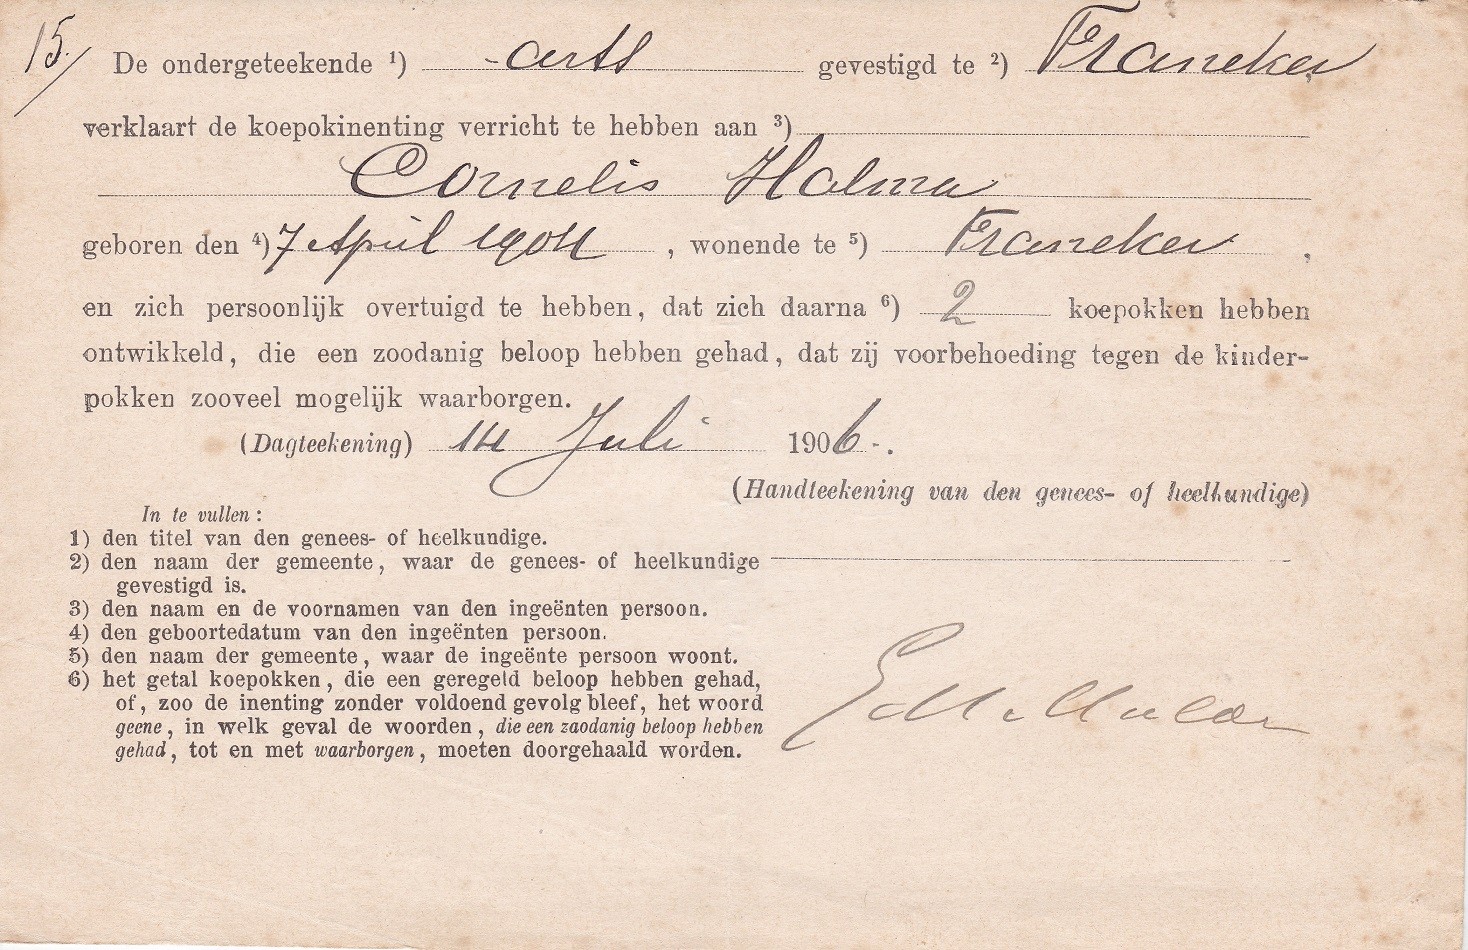 15.
De ondergeteekende ¹) -arts gevestigd te ²) Franeker,
verklaart de koepokinenting verricht te hebben aan ³)
Cornelis Halma
geboren den ⁴) 7 April 1904, wonende te ⁵) Franeker,
en zich persoonlijk overtuigd te hebben, dat zich daarna ⁶) 2 koepokken hebben
ontwikkeld, die een zoodanig beloop hebben gehad, dat zij voorbehoeding tegen de kinder-
pokken zooveel mogelijk waarborgen.
(Dagteekening) 14 Juli 1906-.
(Handteekening van den genees- of heelkundige)
In te vullen:
1) den titel van den genees- of heelkundige.
2) den naam der gemeente, waar de genees- of heelkundige
gevestigd is.
3) den naam en de voornamen van den ingeënten persoon.
4) den geboortedatum van den ingeënten persoon.
5) den naam der gemeente, waar de ingeënte persoon woont.
6) het getal koepokken, die een geregeld beloop hebben gehad,
of, zoo de inenting zonder voldoend gevolg bleef, het woord
geene, in welk geval de woorden, die een zaodanig beloop hebben
gehad, tot en met waarborgen, moeten doorgehaald worden.